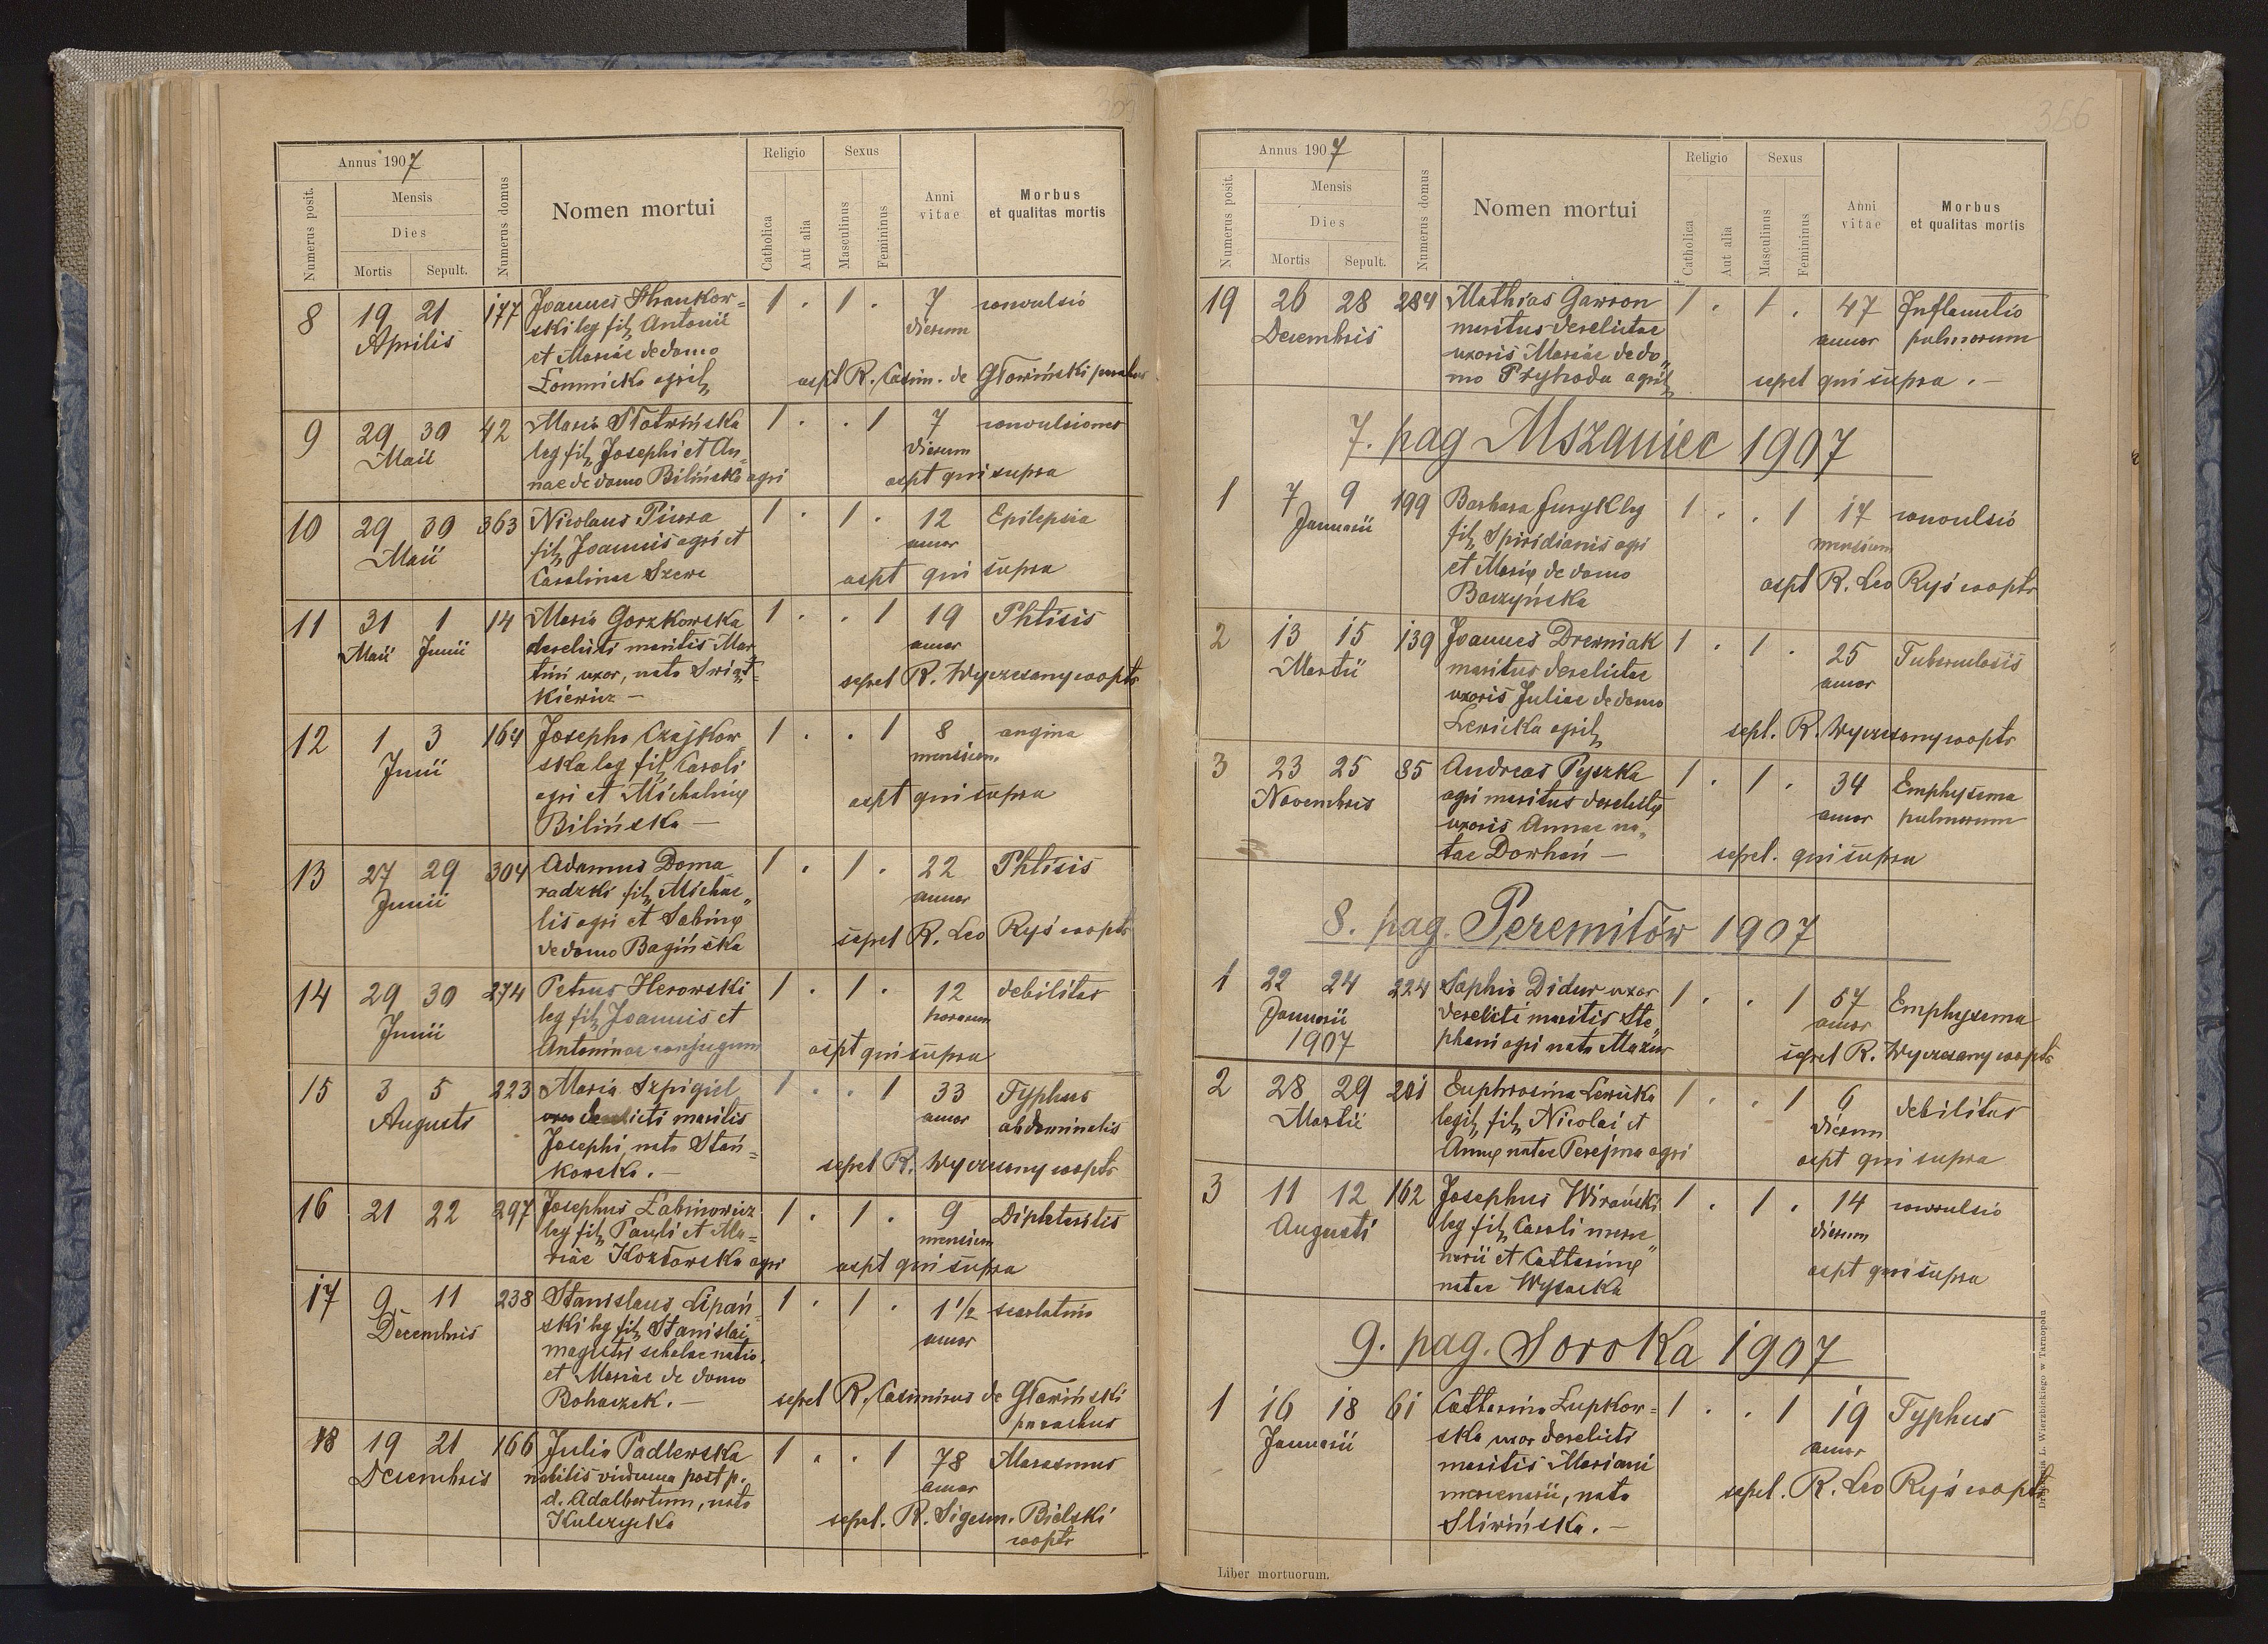 Annus 1907
Numerus posit.
Mensis
Dies
Mortis Sepult.
Numerus domus
Nomen mortui
Religio
Catholica
Aut alia
Sexus
Masculinus
Femininus
Anni vitae
Morbus
et qualitas mortis
8 19 21 177 Joannes Hrankow= 1 . 1 . 7 convulsio
Aprilis ski leg fil Antonii dierum
et Mariae de domo
Łomnicka agril aspt R. Casim. de Głowiński parochus
9 29 30 42 Maria Słotwińska 1 . . 1 7 convulsiones
Maii leg fil Josephi et An= dierum
nae de domo Bilińska agri aspt qui supra
10 29 30 363 Nicolaus Piura 1 . 1 . 12 Epilepsia
Maii fil Joannis agri et annor
Carolinae Szewc aspt qui supra
11 31 1 14 Maria Gorzkowska 1 . . 1 19 Phtisis
Maii Junii derelicti maritis Mar annor
tini uxor, nata Swiąt=
kiewicz — sepel R. Wyczesany coopts
12 1 3 164 Josepha Czajkow 1 . . 1 8 angina
Junii ska leg fil Caroli mensium
agri et Michalinę aspt qui supra
Bilińska —
13 27 29 304 Adamus Doma 1 . 1 . 22 Phtisis
Junii radzki fil Michae„ annor
lis agri et Sabinę
de domo Bagińska sepel R. Leo Ryś coopts
14 29 30 274 Petrus Herowski 1 . 1 . 12 debilitas
Junii leg fil Joannis et horarum
Antoninae conjugum aspt qui supra
15 3 5 223 Maria Szpigiel 1 . . 1 33 Typhus
Augusti uxor derelicti maritis annor abdominalis
Josephi, nata Stań=
kowska. — sepel R. Wyczesany coopts
16 21 22 297 Josephus Łabinowicz 1 . 1 . 9 Diphteritis
leg fil Pauli et Ma= mensium
riae Kozłowska agri aspt qui supra
17 9 11 238 Stanislaus Lipań 1 . 1 . 1 1/2 scarlatina
Decembris ski leg fil Stanislai annor
magistri scholae natio.
et Mariae de domo
Bohaczek. — sepel R. Casimirus de Głowiński
parochus
18 19 21 166 Julia Padlewska 1 . . 1 78 Marasmus
Decembris nobilis vidumna post p. annor
d. Adalbertum, nata
Kulczycka sepel. R. Sigesm. Bielski
coopts
356
Annus 1907
Numerus posit.
Mensis
Dies
Mortis Sepult.
Numerus domus
Nomen mortui
Religio
Catholica
Aut alia
Sexus
Masculinus
Femininus
Anni vitae
Morbus
et qualitas mortis
19 26 28 284 Mathias Gawron 1 . 1 . 47 Inflamatio
Decembris maritus derelictae annor pulmorum
uxoris Mariae de do„
mo Przyhoda agril sepel qui supra. —
7. pag Mszaniec 1907
1 7 9 199 Barbara Juryk leg 1 . . 1 17 convulsio
Januarii fil Spiridianis agri mensium
et Marię de domo aspt R. Leo Ryś coopts
Baczyńska
2 13 15 139 Joannes Drewniak 1 . 1 . 25 Tuberculosis
Martii maritus derelictae annor
uxoris Juliae de domo
Lewicka agril sepl. R. Wyczesany coopts
3 23 25 85 Andreas Pyszka 1 . 1 . 34 Emphysema
Novembris agri maritus derelictę annor pulmorum
uxoris Annae na„
tae Dowhań — sepel. qui supra
8. pag. Peremiłów 1907
1 22 24 224 Sophia Didur uxor 1 . . 1 57 Emphysema
Januarii derelicti maritis Ste„ annor
1907 phani agri nata Mazur sepel R. Wyczesany coopts
2 28 29 201 Euphrosina Lewicka 1 . . 1 6 debilitas
Martii legit fil Nicolai et dierum
Annę natae Perejma agri aspt qui supra
3 11 12 162 Josephus Wirański 1 . 1 . 14 convulsio
Augusti leg fil Caroli merce dierum
narii et Catharinę
natae Wysocka aspt qui supra
9. pag. Soroka 1907
1 16 18 61 Catharina Łupkow= 1 . . 1 19 Typhus
Januarii ska uxor derelicti annor
maritis Mariani
mercenarii, nata sepel. R. Leo Ryś coopts
Sliwińska. —
Liber mortuorum.
Drukarnia L. Wierzbickiego w Tarnopolu